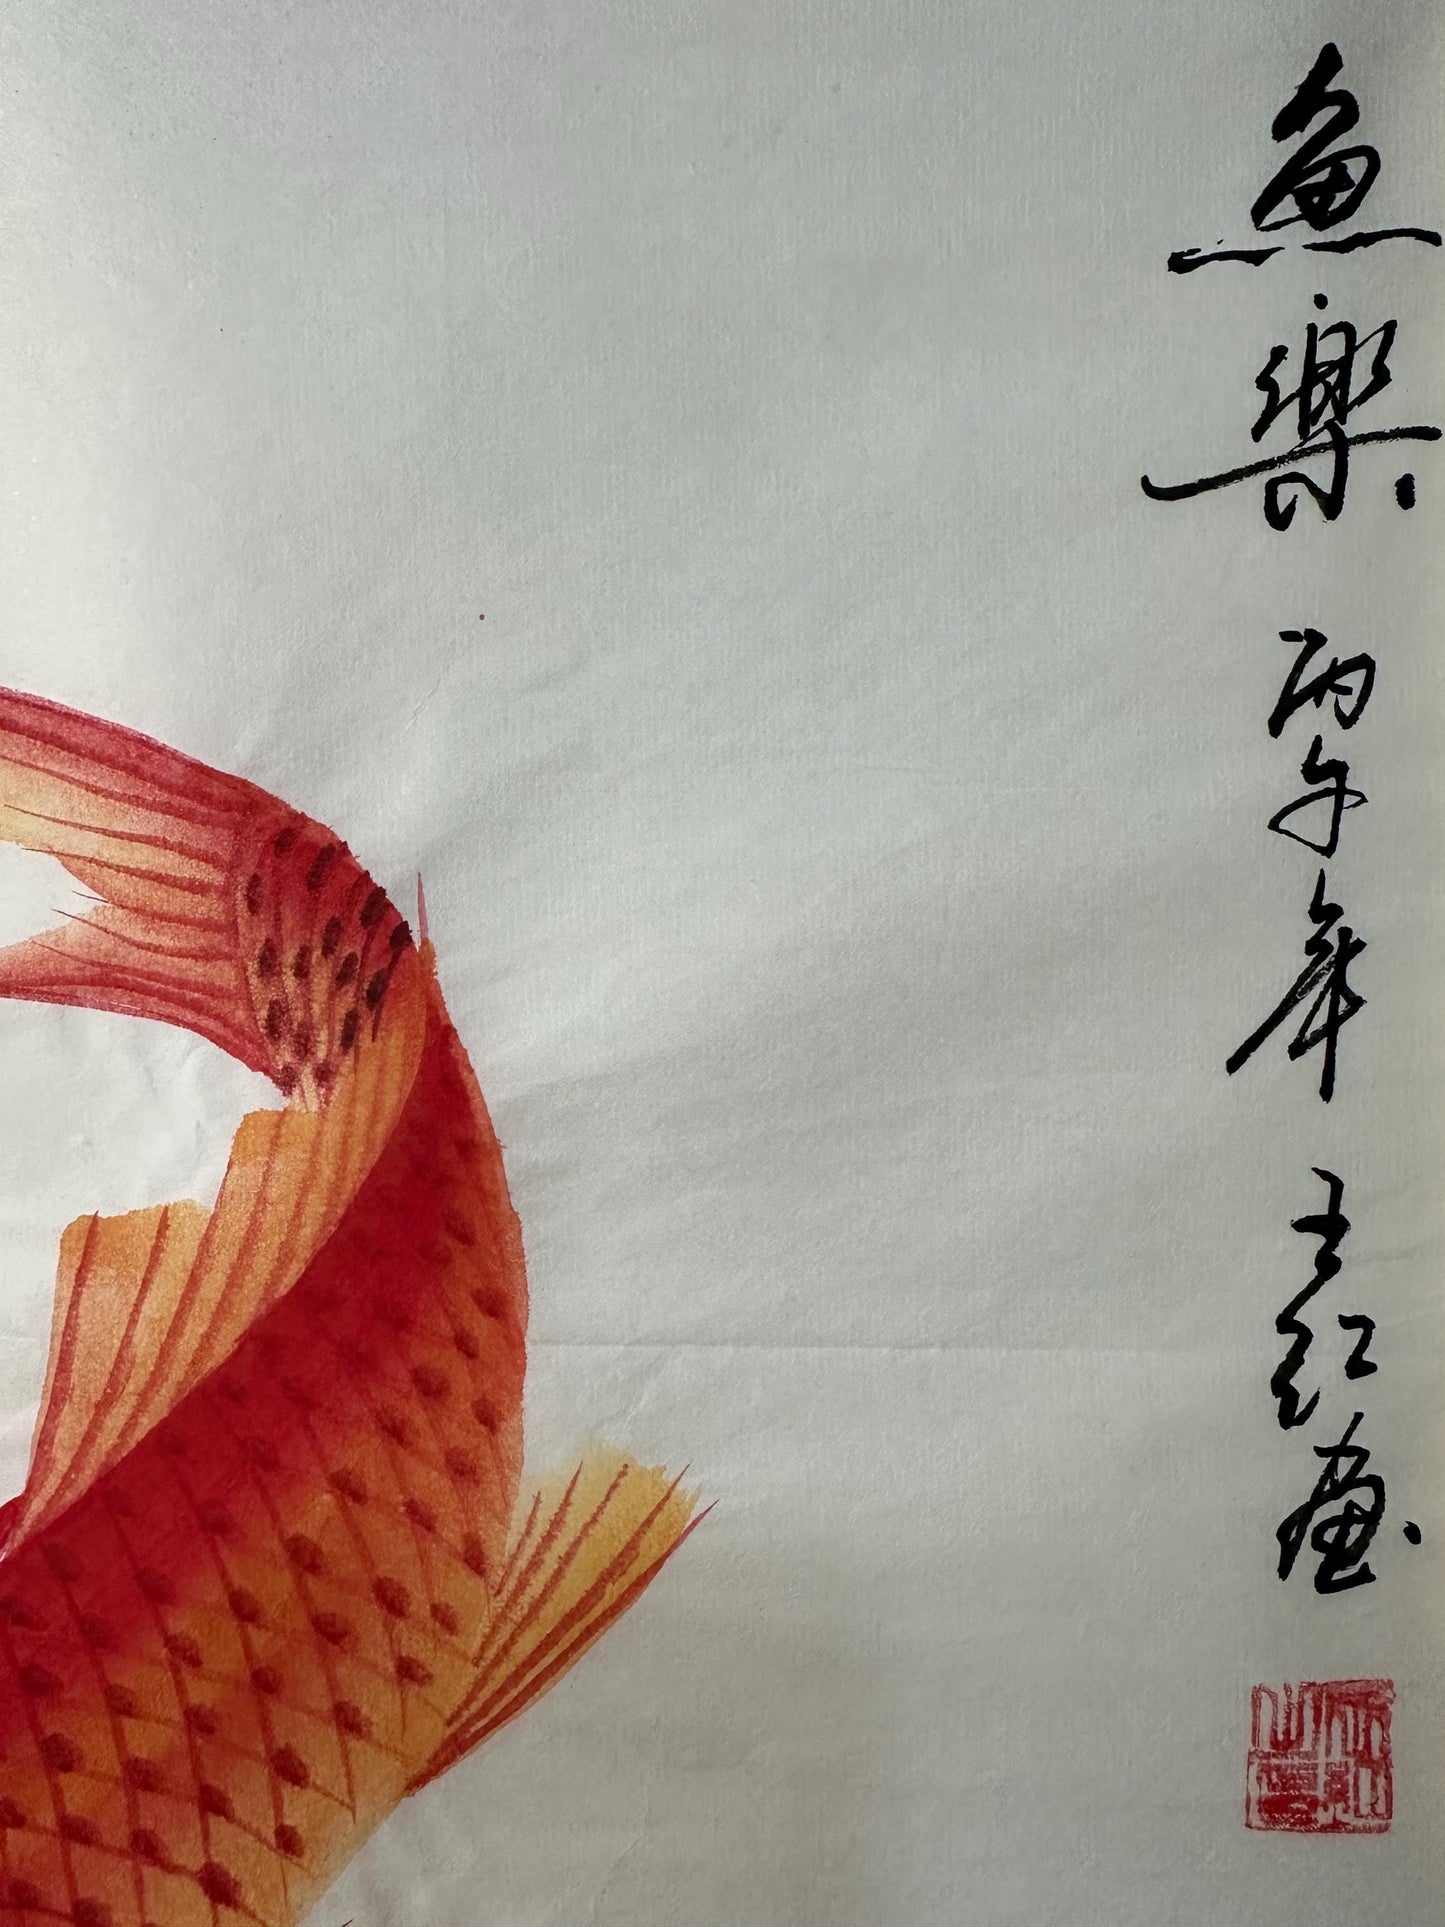 魚樂 丙午年 王红畫